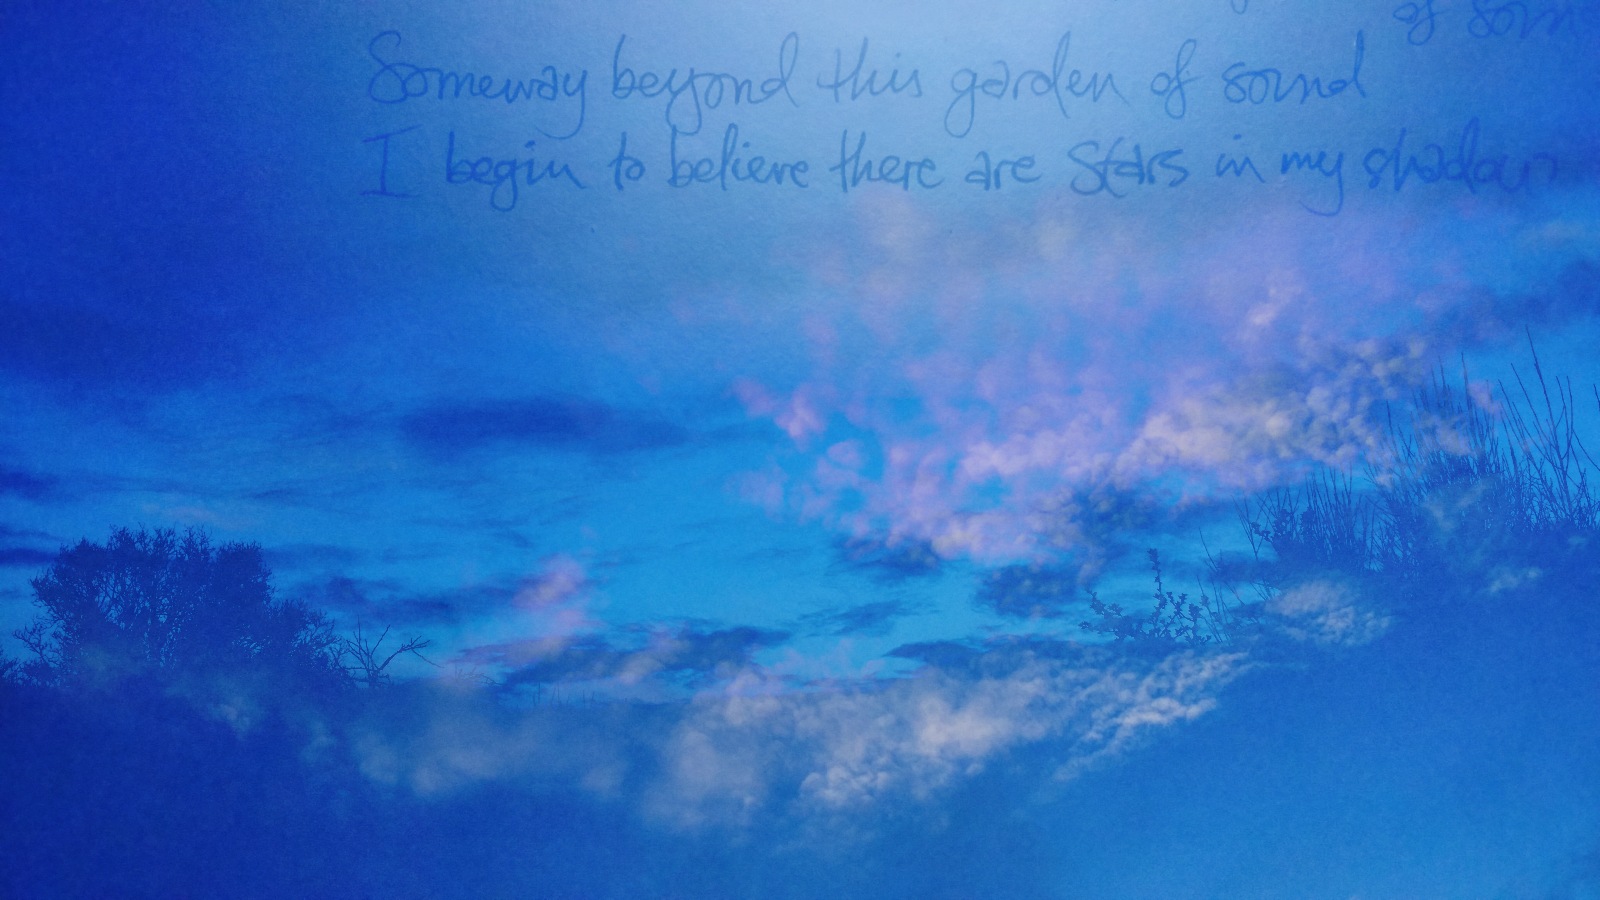 of som
Someway beyond this garden of sound
I begin to believe there are stars in my shadow